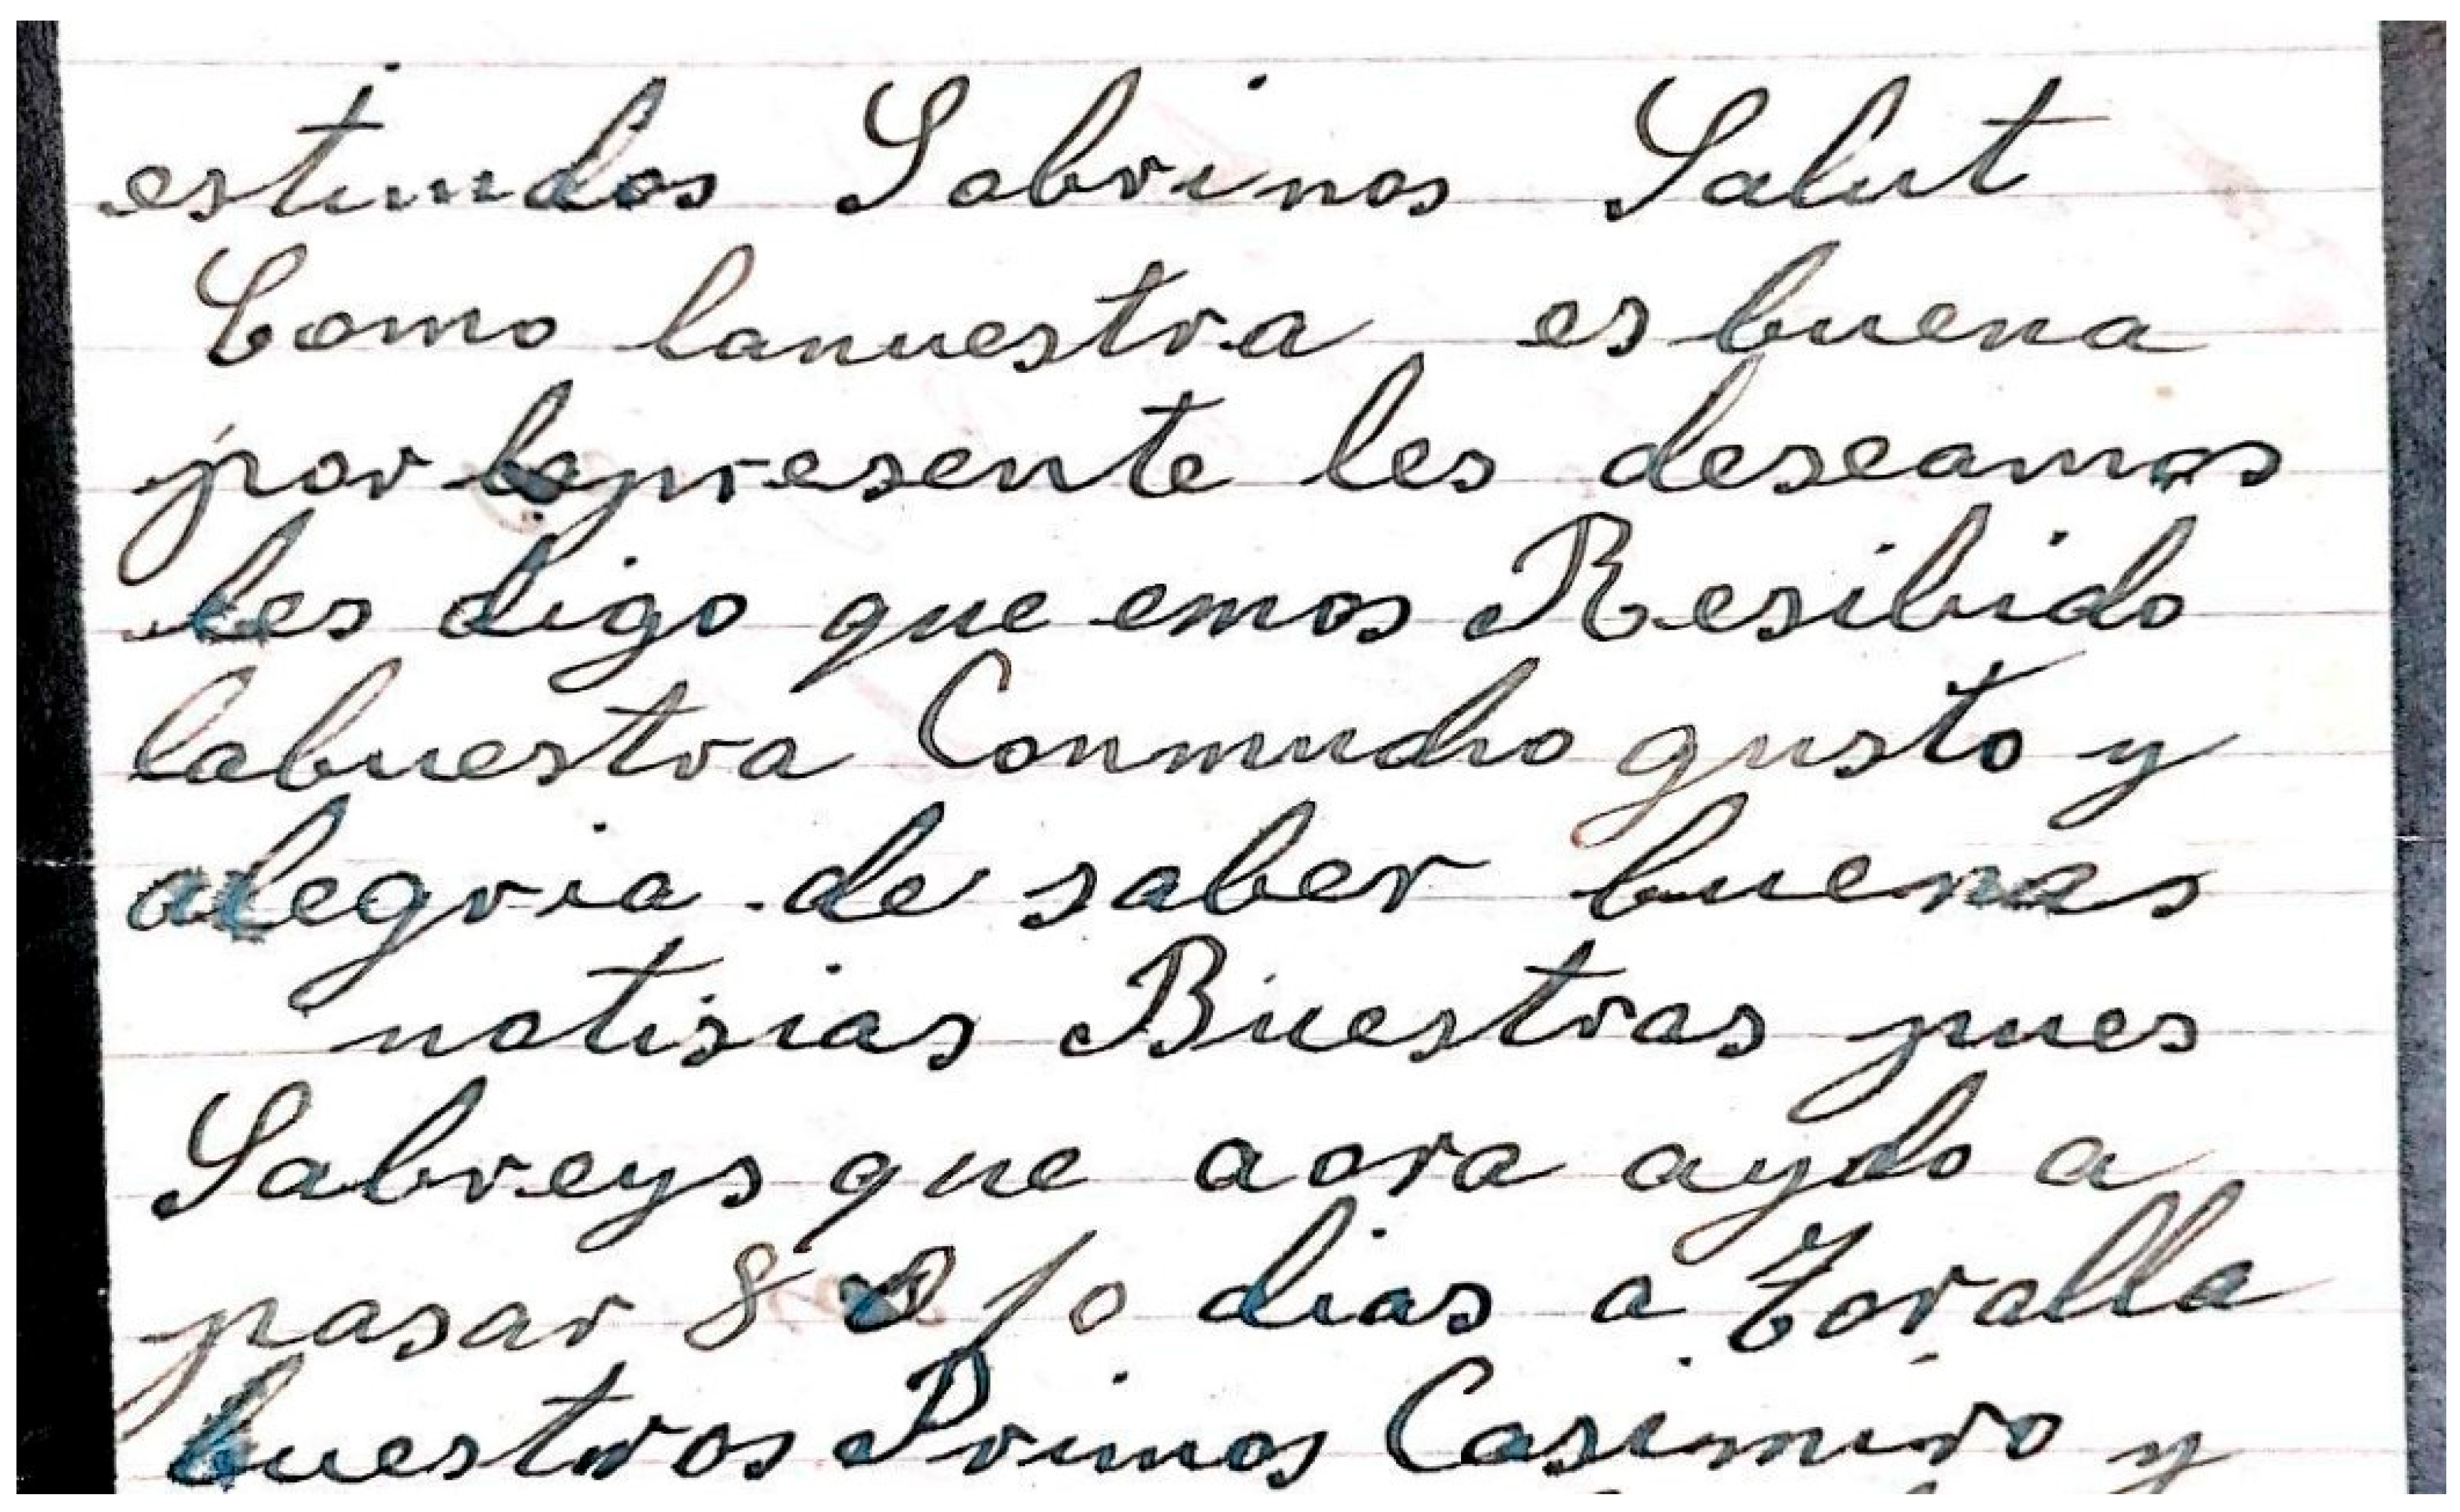 estimdos Sobrinos Salut
Como lanuestra es buena
por lapresente les deseamos
les digo que emos Resibido
labuestra Conmucho gusto y
alegria de saber buenas
notisias Buestras pues
Sabreys que aora aydo a
pasar 8 o 10 dias a Toralla
buestros Primos Casimiro y